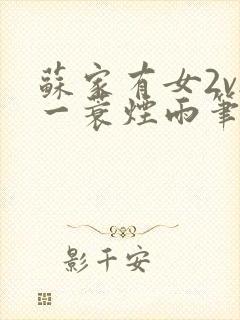 蘇家有女2v
一蓑煙雨筆
影千安